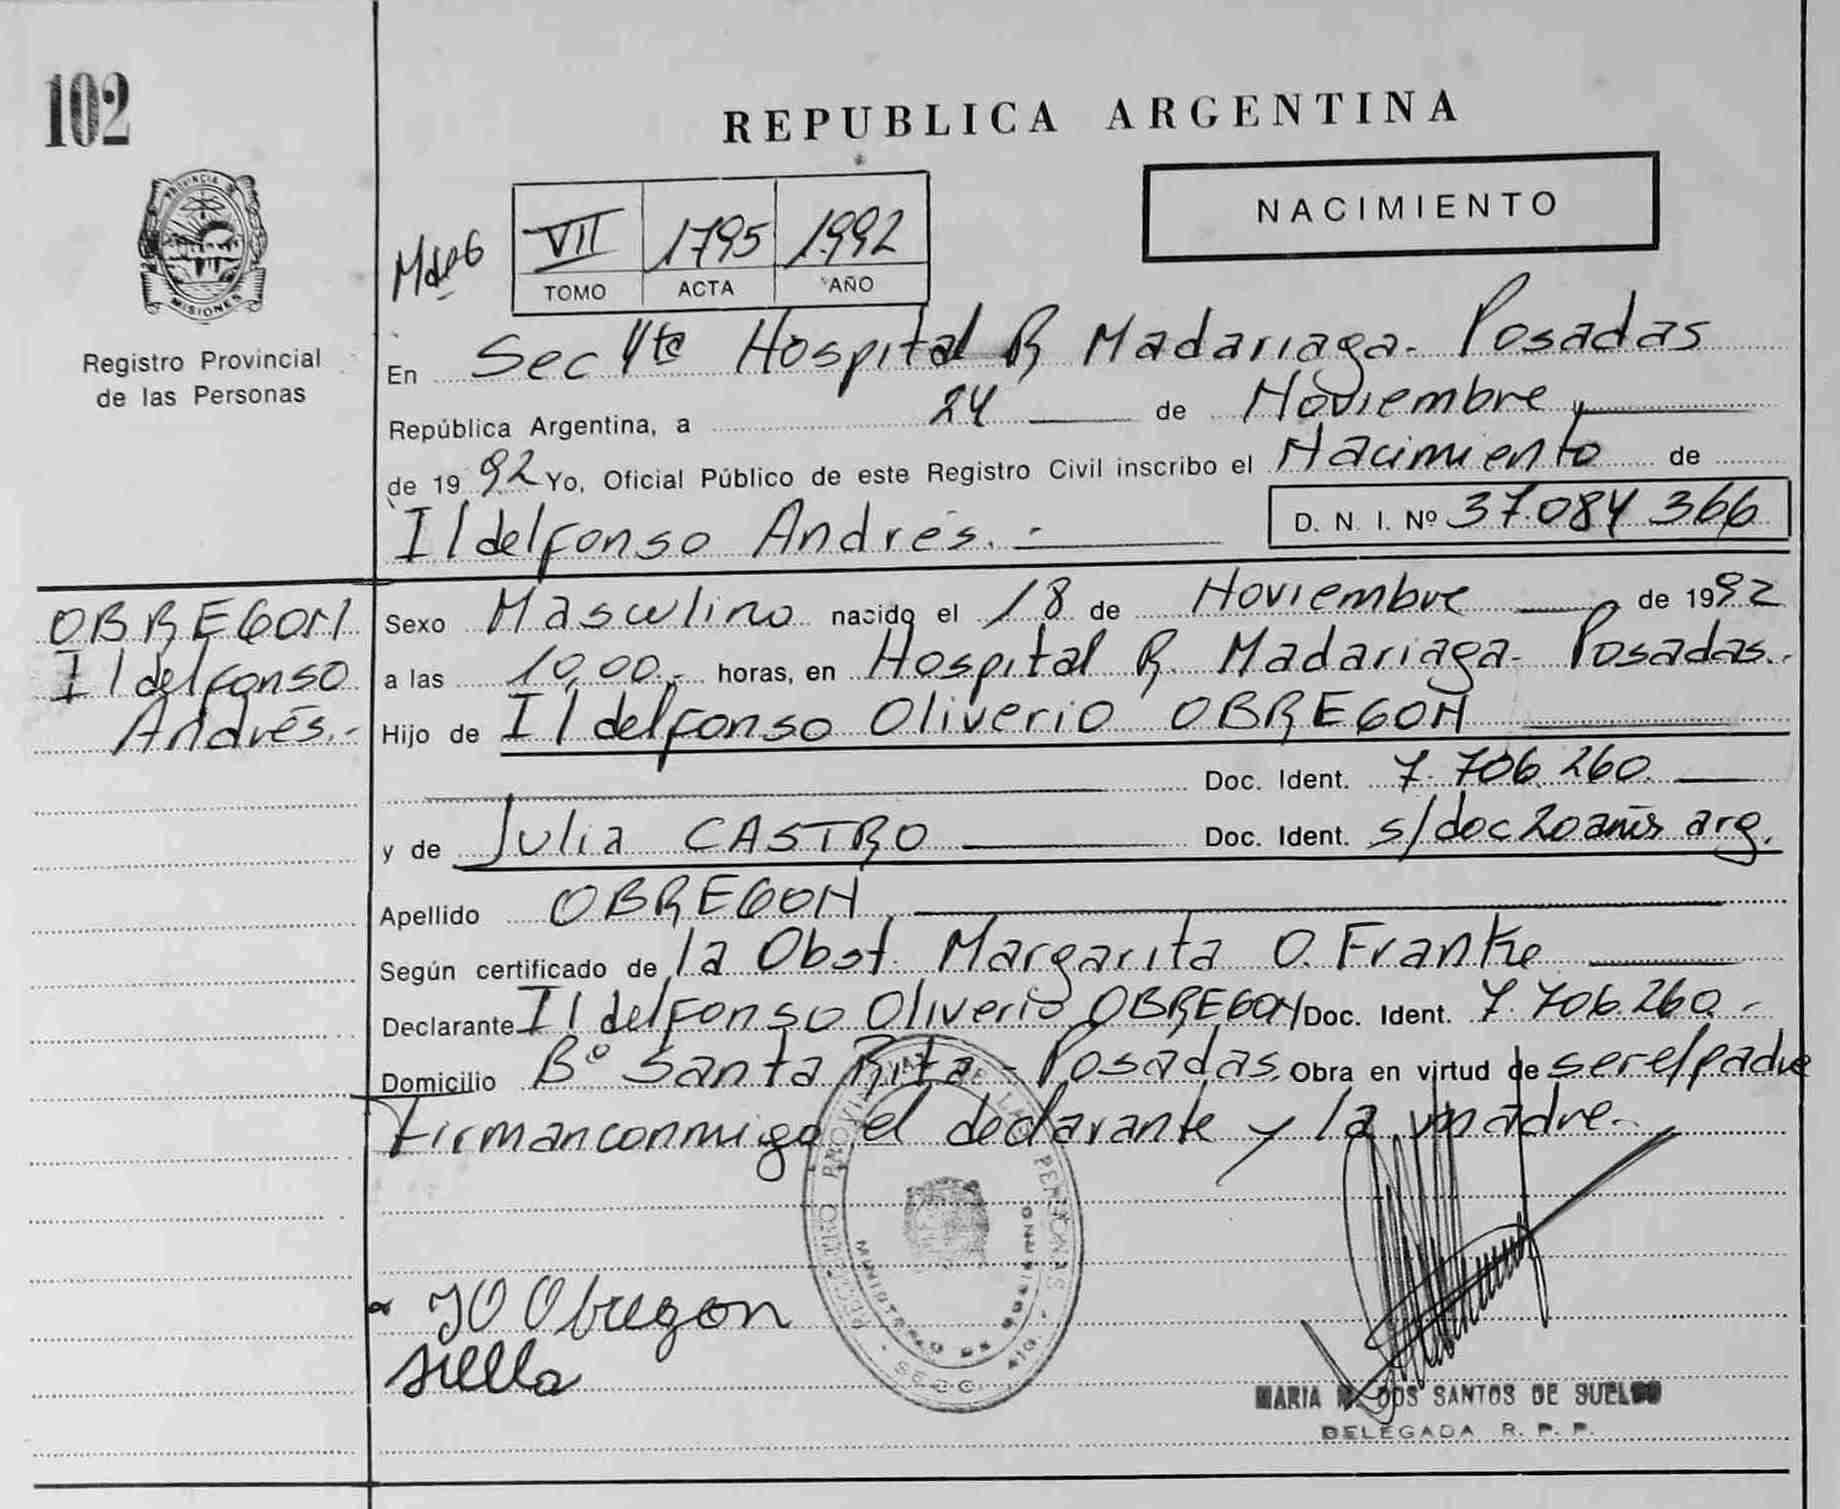 102
REPUBLICA ARGENTINA
PROVINCIA DE
MISIONES
Registro Provincial
de las Personas
VII 1795 1992
TOMO ACTA AÑO
NACIMIENTO
En Sec 4ta Hospital R Madariaga - Posadas
República Argentina, a 24 de Noviembre
de 1992 Yo, Oficial Público de este Registro Civil inscribo el Nacimiento de
Ildelfonso Andres.-
D. N. I. Nº 37.084 366
OBREGON
Ildelfonso
Andrés.-
Sexo Masculino nacido el 18 de Noviembre de 1992
a las 10,00.- horas, en Hospital R. Madariaga - Posadas.-
Hijo de Ildelfonso Oliverio OBREGON
Doc. Ident. 7.706.260.
y de Julia CASTRO Doc. Ident. s/doc 20 años arg.
Apellido OBREGON
Según certificado de la Obst. Margarita O. Franke
Declarante Ildelfonso Oliverio OBREGON Doc. Ident. 7.706.260.-
Domicilio Bº Santa Rita - Posadas. Obra en virtud de ser el padre
Firman conmigo el declarante y la madre.-
REGISTRO PROVINCIAL DE LAS PERSONAS
MINISTERIO DE GOBIERNO
JO Obregon
MARIA DOS SANTOS DE
DELEGADA R. P. P.